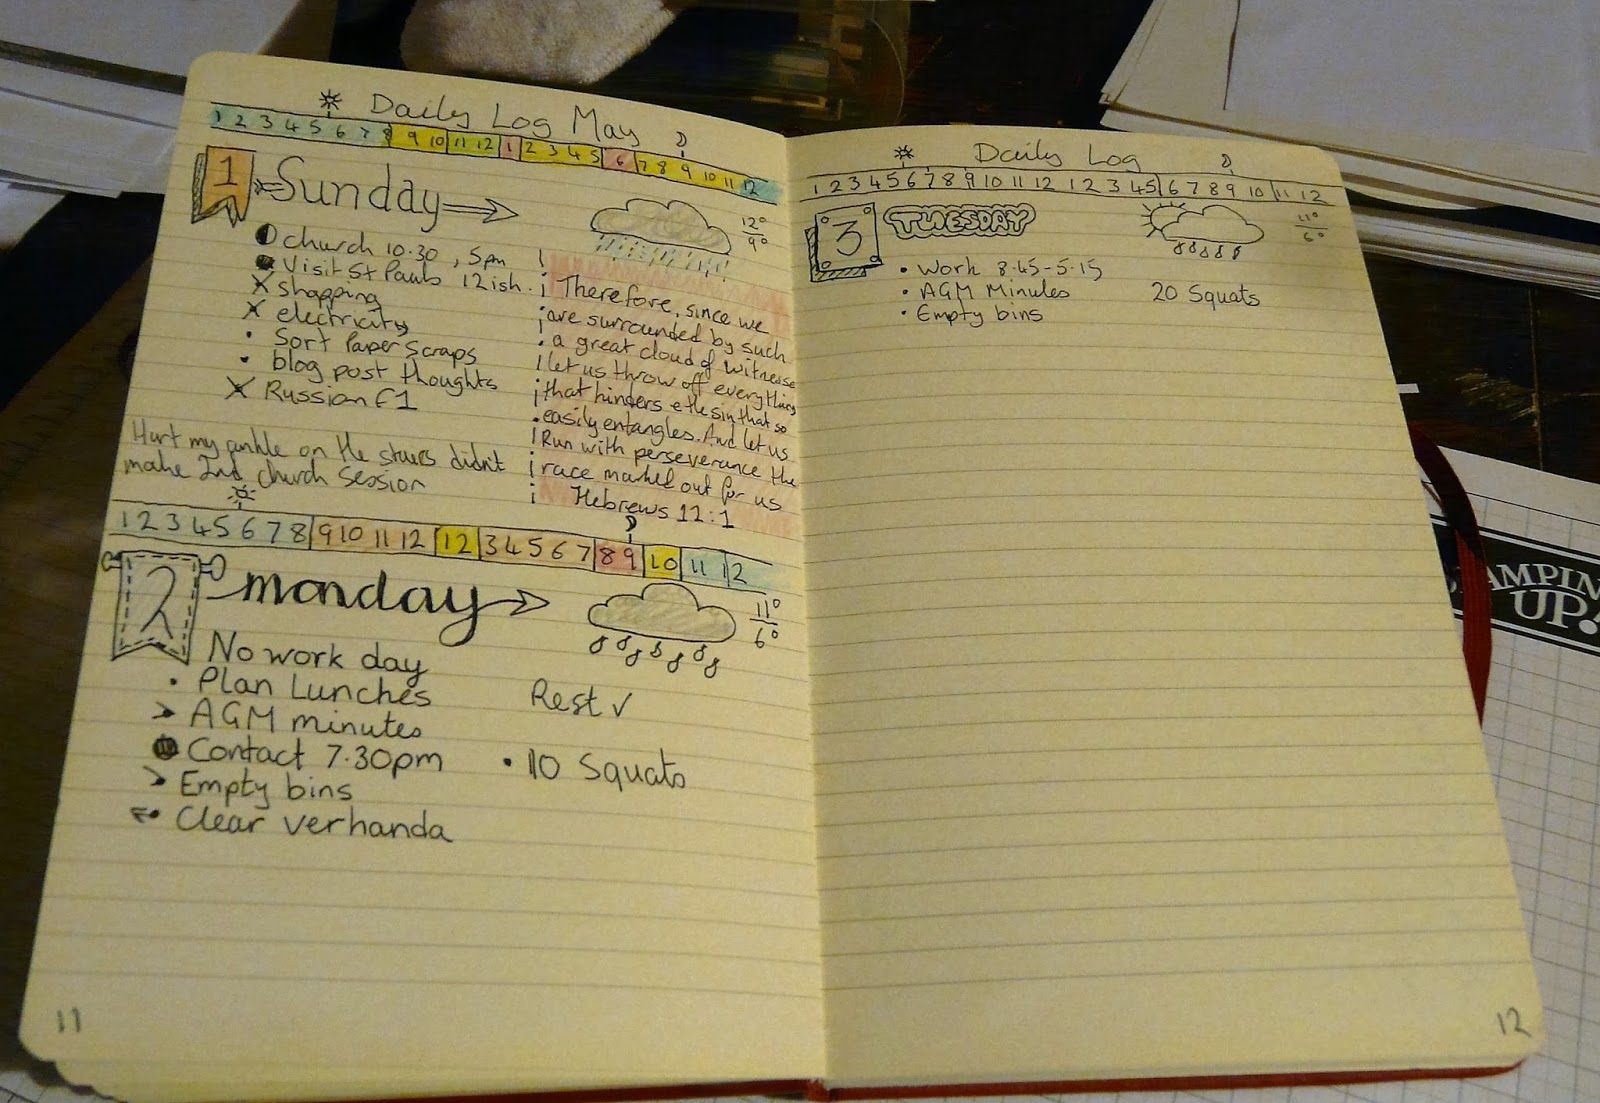 Daily Log May
1 2 3 4 5 6 7 8 9 10 11 12 1 2 3 4 5 6 7 8 9 10 11 12
1 Sunday
12°
9°
church 10.30, 5pm
Visit St Pauls 12ish.
shopping
electricity
Sort Paper Scraps
blog post thoughts
Russian F1
Hurt my ankle on the stairs didn't
make 2nd church session
Therefore, since we
are surrounded by such
a great cloud of witnesse
let us throw off everything
that hinders & the sin that so
easily entangles. And let us
Run with perseverance the
race marked out for us
Hebrews 12:1
1 2 3 4 5 6 7 8 9 10 11 12 1 2 3 4 5 6 7 8 9 10 11 12
2 monday
11°
6°
No work day
Plan Lunches
AGM minutes
Contact 7.30pm
Empty bins
Clear verhanda
Rest ✓
10 Squats
11
Daily Log
1 2 3 4 5 6 7 8 9 10 11 12 1 2 3 4 5 6 7 8 9 10 11 12
3 TUESDAY
11°
6°
Work 8.45-5.15
AGM Minutes
Empty bins
20 Squats
12
AMPIN
UP!